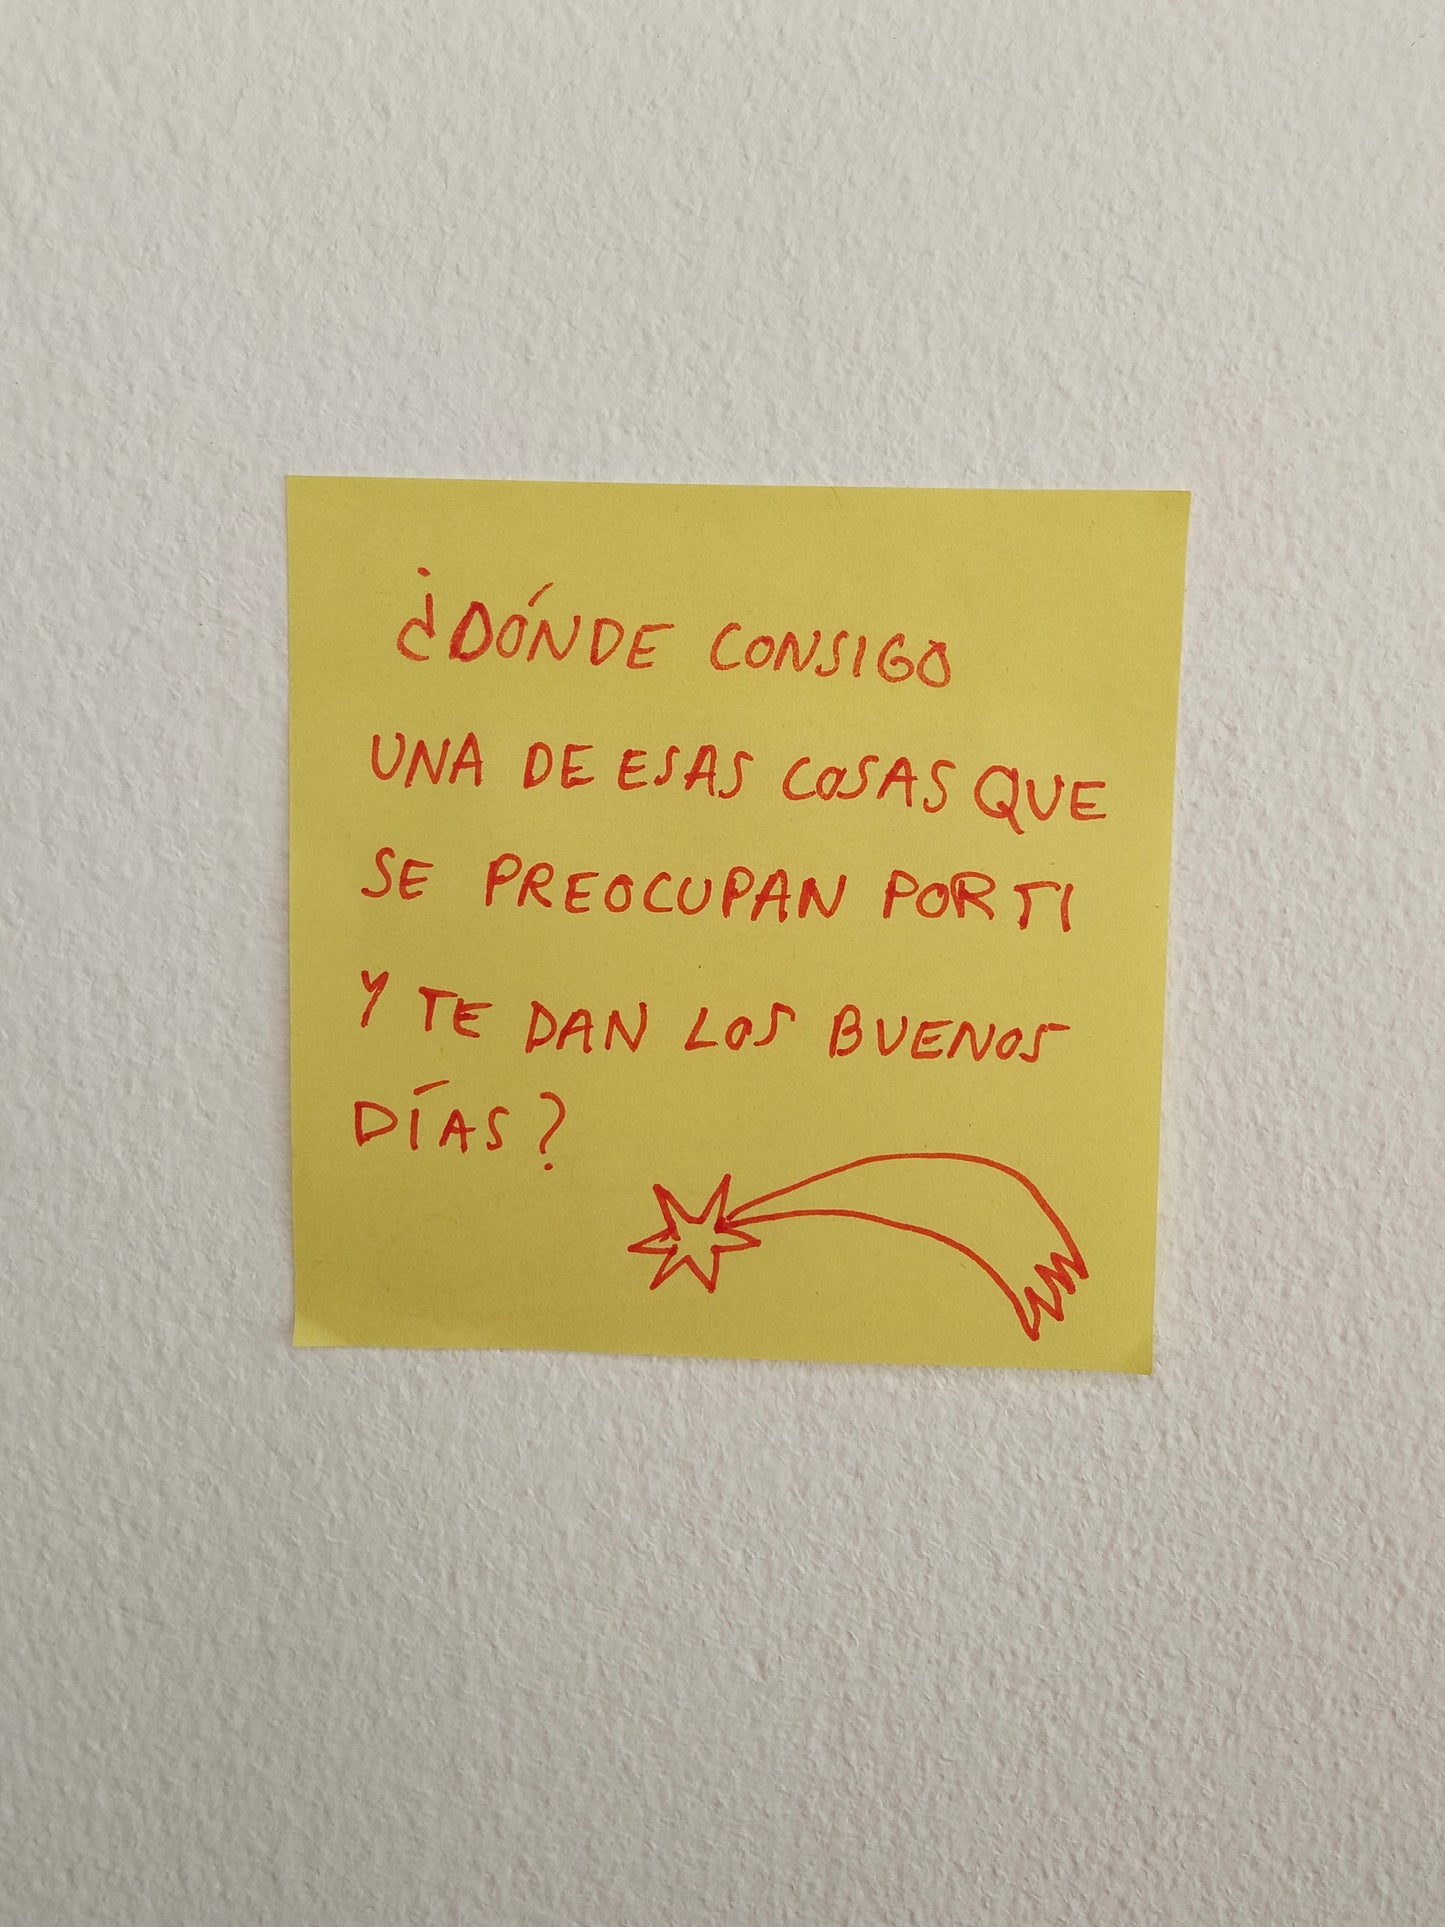 ¿DÓNDE CONSIGO
UNA DE ESAS COSAS QUE
SE PREOCUPAN POR TI
Y TE DAN LOS BUENOS
DÍAS?